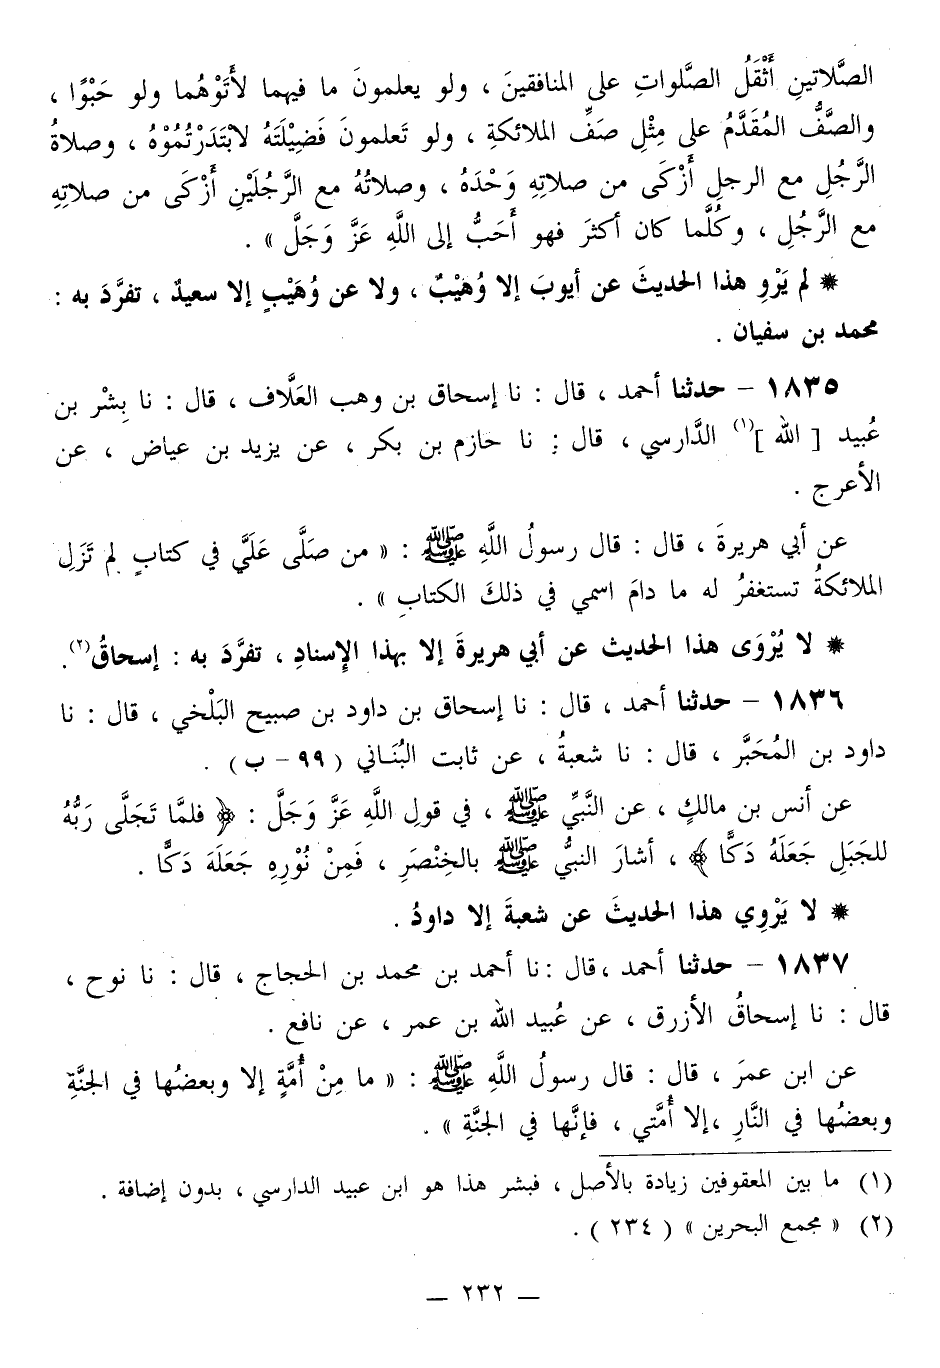 الصَّلاتينِ أَثْقَلُ الصَّلواتِ على المنافقينَ ، ولو يعلمونَ ما فيهما لأَتَوْهُما ولو حَبْوًا ،
والصَّفُّ المُقَدَّمُ على مِثْلِ صَفِّ الملائكةِ ، ولو تَعلمونَ فَضِيْلَتَهُ لابْتَدَرْتُمُوْهُ ، وصلاةُ
الرَّجُلِ مع الرجلِ أَزْكَى من صلاتِهِ وَحْدَهُ ، وصلاتُهُ مع الرَّجُلَيْنِ أَزْكَى من صلاتِهِ
مع الرَّجُلِ ، وكُلَّما كان أكثرَ فهو أَحَبُّ إلى اللَّهِ عَزَّ وَجَلَّ » .
* لم يَرْوِ هذا الحديثَ عن أيوبَ إلا وُهَيْبٌ ، ولا عن وُهَيْبٍ إلا سعيدٌ ، تفرَّدَ به :
محمد بن سفيان .
١٨٣٥ – حدثنا أحمد ، قال : نا إسحاق بن وهب العَلَّاف ، قال : نا بِشْر بن
عُبيد [ الله ](١) الدَّارسي ، قال : نا حازم بن بكر ، عن يزيد بن عياض ، عن
الأعرج .
عن أبي هريرةَ ، قال : قال رسولُ اللَّهِ ﷺ : « من صَلَّى عَلَيَّ في كتابٍ لم تَزَلِ
الملائكةُ تستغفرُ له ما دامَ اسمي في ذلكَ الكتابِ » .
* لا يُرْوَى هذا الحديث عن أبي هريرةَ إلا بهذا الإِسنادِ ، تفرَّدَ به : إسحاقُ(٢).
١٨٣٦ – حدثنا أحمد ، قال : نا إسحاق بن داود بن صبيح البَلْخي ، قال : نا
داود بن المُحَبَّر ، قال : نا شعبةُ ، عن ثابت البُنَاني ( ٩٩ – ب ) .
عن أنس بن مالكٍ ، عن النَّبيِّ ﷺ ، في قولِ اللَّهِ عَزَّ وَجَلَّ : ﴿ فلمَّا تَجَلَّى رَبُّهُ
للجَبَلِ جَعَلَهُ دَكًّا ﴾ ، أشارَ النبيُّ ﷺ بالخِنْصَرِ ، فَمِنْ نُوْرِهِ جَعَلَهَ دَكًّا .
* لا يَرْوِي هذا الحديثَ عن شعبةَ إلا داودُ .
١٨٣٧ – حدثنا أحمد ،قال : نا أحمد بن محمد بن الحجاج ، قال : نا نوح ،
قال : نا إسحاقُ الأزرق ، عن عُبيد الله بن عمر ، عن نافع .
عن ابن عمرَ ، قال : قال رسولُ اللَّهِ ﷺ : « ما مِنْ أُمَّةٍ إلا وبعضُها في الجنَّةِ
وبعضُها في النَّارِ ،إلا أُمَّتي ، فإنَّها في الجنَّةِ » .
(١) ما بين المعقوفين زيادة بالأصل ، فبشر هذا هو ابن عبيد الدارسي ، بدون إضافة .
(٢) « مجمع البحرين » ( ٢٣٤ ) .
— ٢٣٢ —